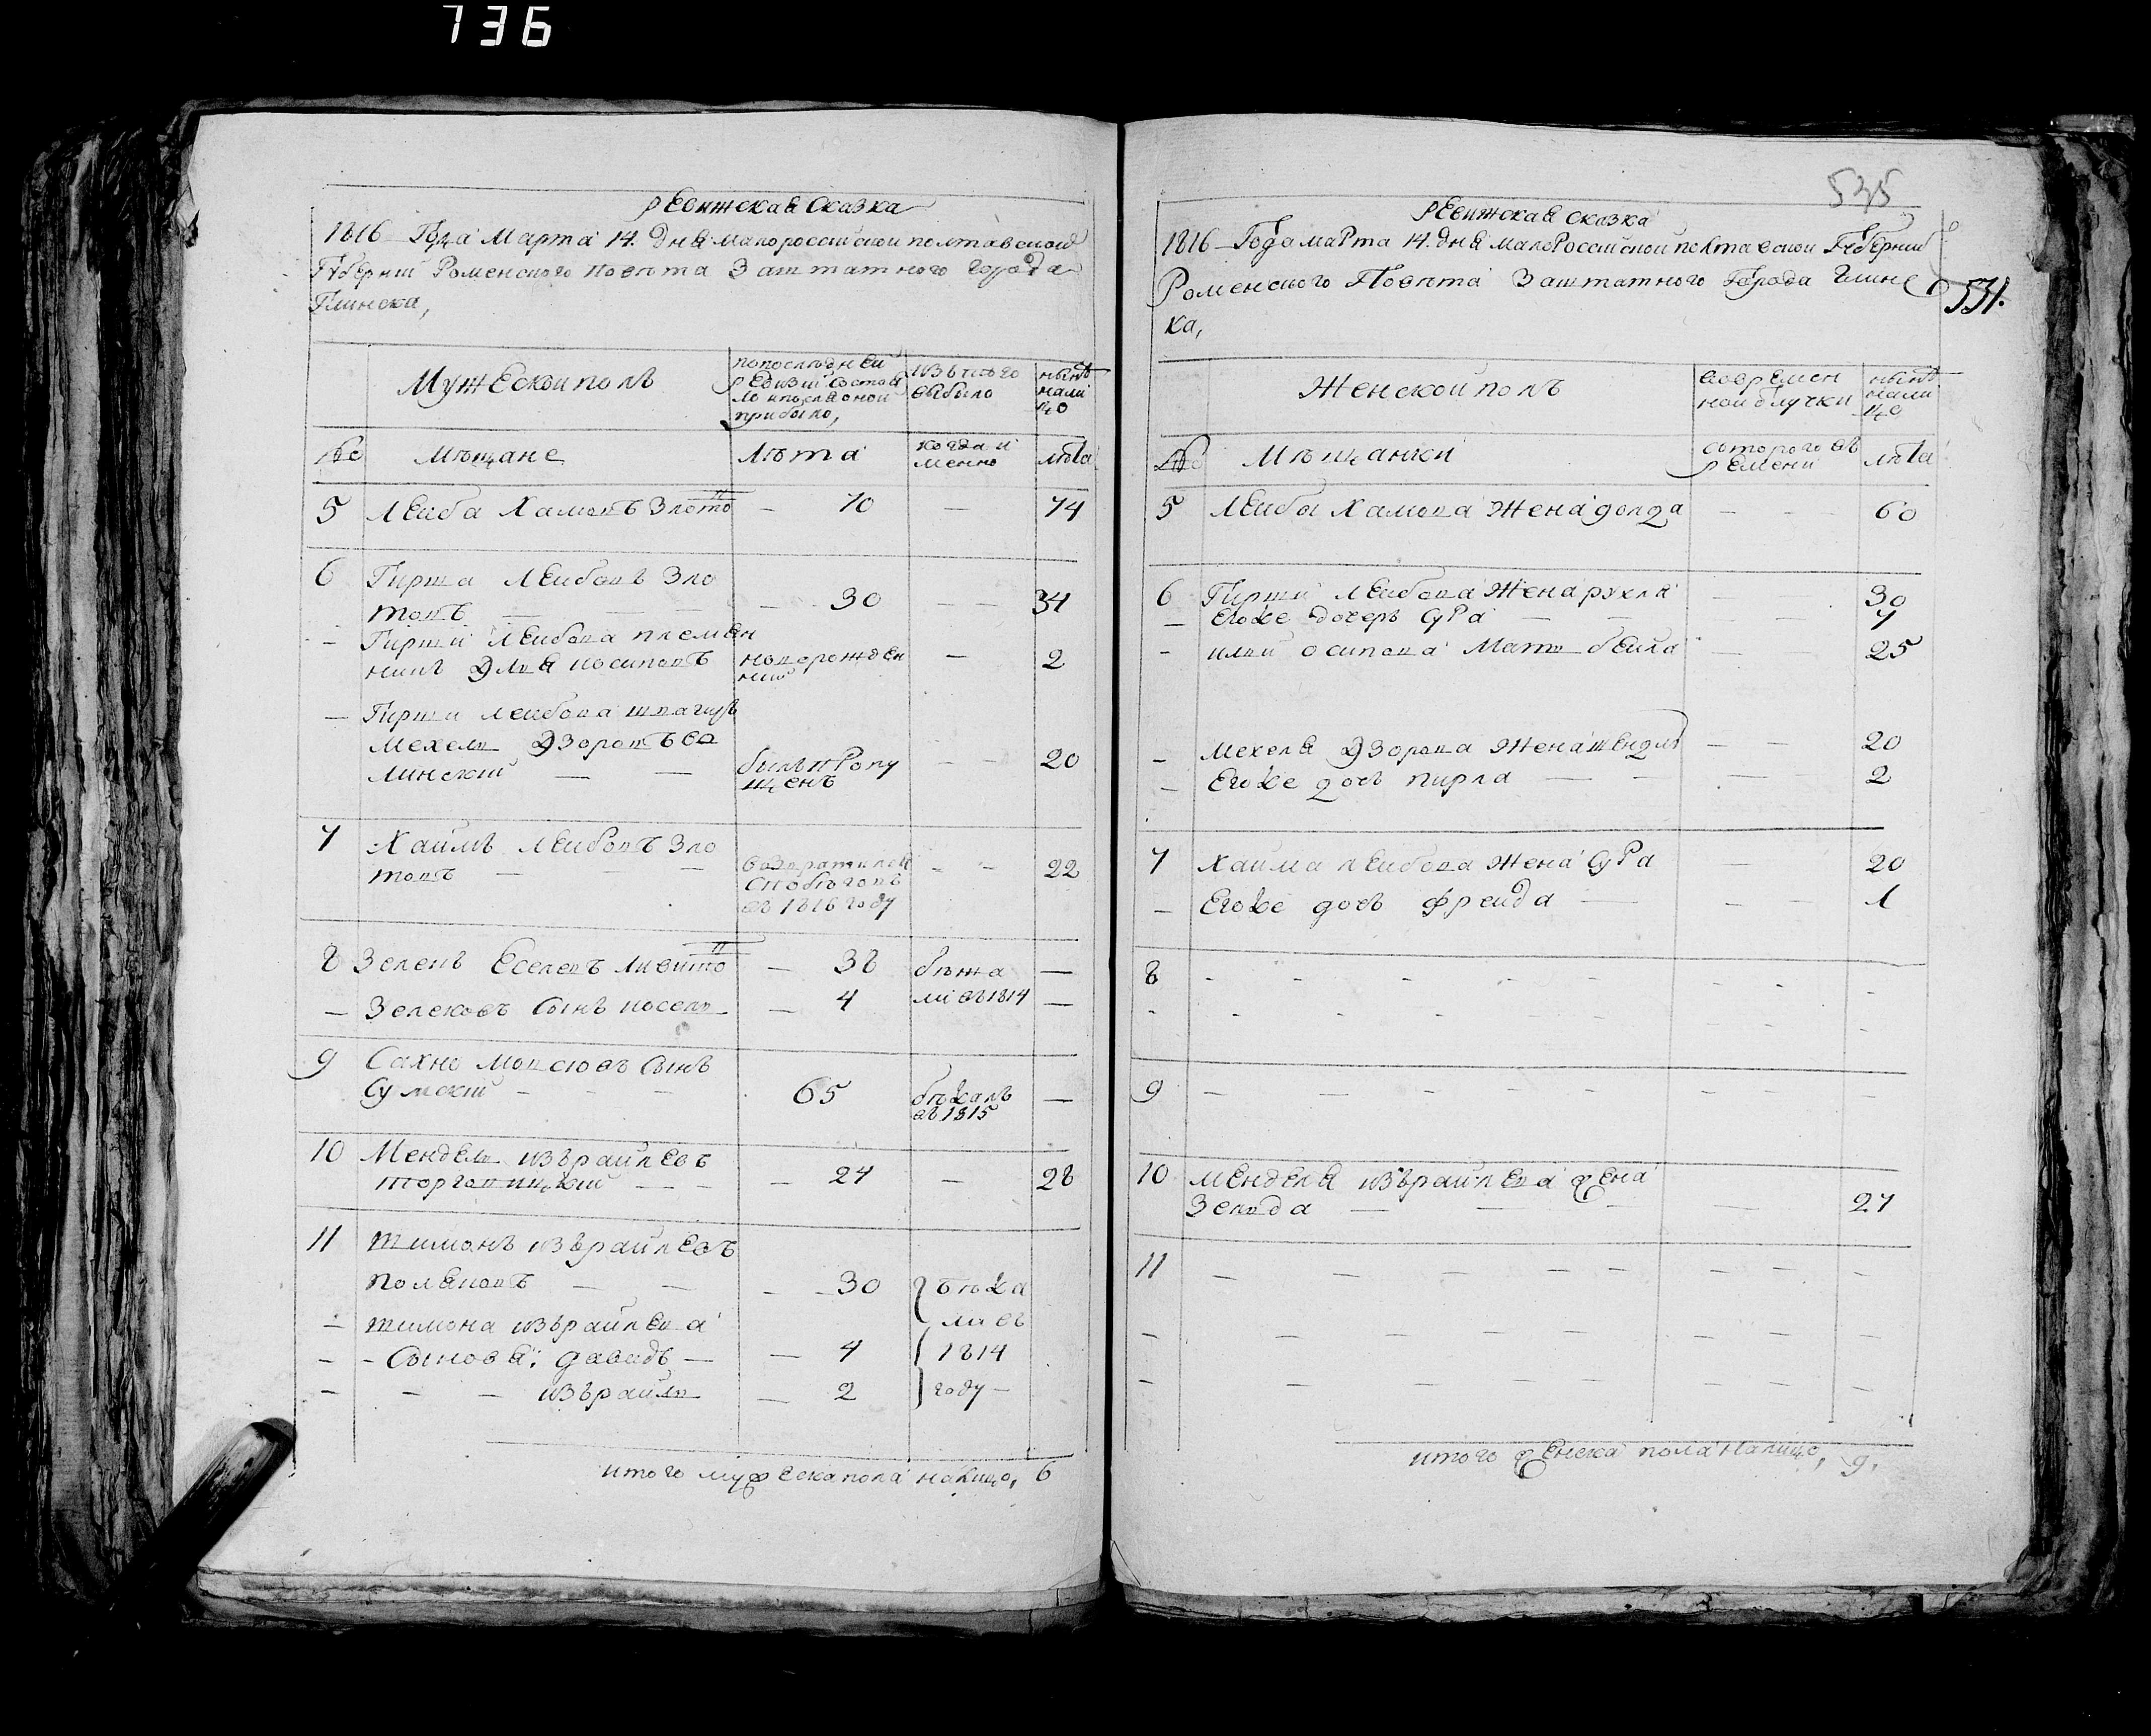 736
ревижская Сказка
1816 Года Марта 14. дня малороссийской полтавской
Губерний Роменского повѣта Заштатного города
Глинска,
Мужеской полъ
попослѣдней ревизий состояло ипослѣоной прибыло,
изътого выбыло
нынѣ налицо
№
мѣщане
лѣта
когда именно
лѣта
5 Леиба Хамовъ Злотов — 70 — 74
6 Гирша Леибовъ Зло
товъ — — — 30 — — 34
— Гирши Леибова племен
никъ Элия иосиповъ новорожден — 2
ний
— Гирши Леибова швагиръ
мехель Эзоровъ во
линский — — билъ пропу — — 20
щенъ
7 Хаимъ Леибовъ Зло
товъ — — — возвратился — — 22
спобѣговъ
въ 1816 году
8 Зелекъ Еселевъ Ливитов — 38 бѣжа —
— Зелековъ Сынъ иосель — 4 ли въ 1814 —
9 Сахно мовсювъ Сынъ
Сумский — — — 65 бѣжалъ —
въ 1815
10 Мендель изъраилевъ
торговицкий — — — 24 — 28
11 шимонъ изъраилевъ
поляковъ — — — 30 бѣжа
— шимона изъраилева ли въ
— — Сыновя: давидъ — — 4 1814
— — — изъраиль — 2 году —
итого мужеска пола налицо, 6
535
ревижская сказка
1816 Года марта 14. дня малороссийской полтавской Губерний
Роменского Повѣта Заштатного Города Глинс
ка,
531.
Женской полъ
вовремен ной отлучки
нынѣ налицо
№
мѣщанки
скоторого времени
лѣта
5 Леибы Хамова Жена долда — — — 60
6 Гирши Леибова Жена рухля — — 30
— Егоже дочеръ Сура — — — — 7
— илии осипова Мать беила — — 25
— мехеля Эзорова Жена шендля — — 20
— Егоже дочь пирла — — — 2
7 Хаима леибова Жена Сура — 20
— Егоже дочь фреида — — — 1
8 — — — — — — — —
— — — — — — — — —
9 — — — — — — — —
10 менделя изъраилева жена
Зельда — — — — 27
11 — — — — — — — —
— — — — — — — — —
— — — — — — — — —
итого женска пола налицо, 9.